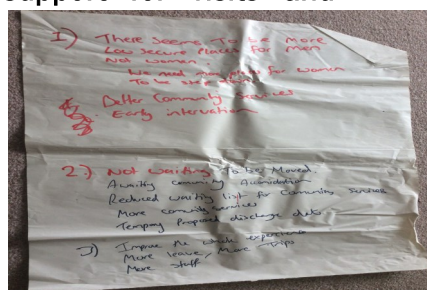 1) There seems To be more
Low secure Places for men
Not women.
We need more places for women
To be
Better Community Services
Early intervention
2) Not waiting To be Moved.
Awaiting community Accomodation
Reduced waiting list for Community services
More community services
Tempory Proposed discharge date
3) Improve the whole experience
More leave, More Trips
More staff